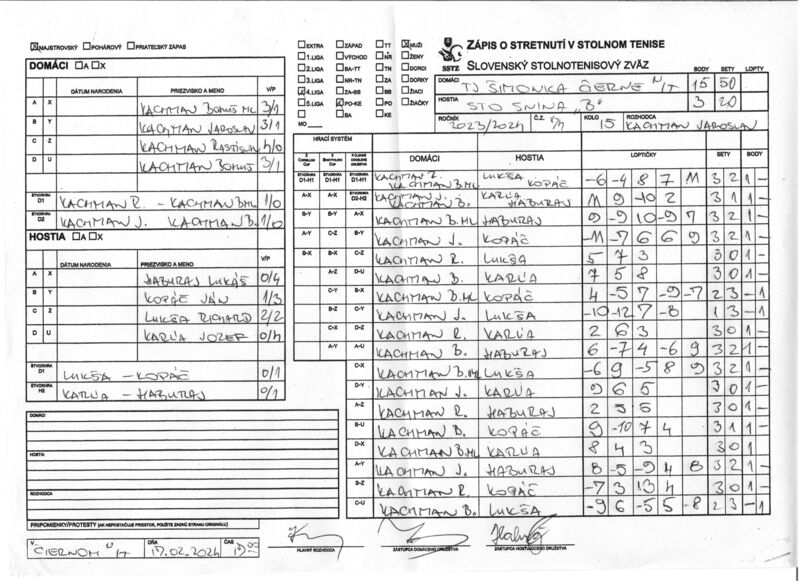 MAJSTROVSKÝ POHÁROVÝ PRIATEĽSKÝ ZÁPAS
EXTRA ZÁPAD TT MUŽI
1.LIGA VÝCHOD NR ŽENY
2.LIGA BA-TT TN DORCI
3.LIGA NR-TN ZA DORKY
4.LIGA ZA-BB BB ŽIACI
5.LIGA PO-KE PO ŽIAČKY
MO BA KE
SSTZ
ZÁPIS O STRETNUTÍ V STOLNOM TENISE
SLOVENSKÝ STOLNOTENISOVÝ ZVÄZ
BODY SETY LOPTY
DOMÁCI TJ ŠIMONKA ČIERNE N/T 15 50
HOSTIA STO SNINA "B" 3 20
ROČNÍK 2023/2024 Č.Z. KOLO 15 ROZHODCA KACHMAN JAROSLAV
DOMÁCI A X
DÁTUM NARODENIA PRIEZVISKO A MENO V/P
A X KACHMAN BOHUŠ ML. 3/1
B Y KACHMAN JAROSLAV 3/1
C Z KACHMAN RASTISLAV 4/0
D U KACHMAN BOHUŠ 3/1
ŠTVORHRA D1 KACHMAN R. - KACHMAN B.ML 1/0
ŠTVORHRA D2 KACHMAN J. KACHMAN B. 1/0
HOSTIA A X
DÁTUM NARODENIA PRIEZVISKO A MENO V/P
A X HABURAJ LUKÁŠ 0/4
B Y KOPÁČ JÁN 1/3
C Z LUKŠA RICHARD 2/2
D U KARĽA JOZEF 0/4
ŠTVORHRA LUKŠA - KOPÁČ 0/1
ŠTVORHRA H2 KARĽA - HABURAJ 0/1
DOMÁCI
HOSTIA
ROZHODCA
PRIPOMIENKY/PROTESTY (AK NEPOSTAČUJE PRIESTOR, POUŽITE ZADNÚ STRANU ORIGINÁLU)
HRACÍ SYSTÉM
DOMÁCI HOSTIA LOPTIČKY SETY BODY
ŠTVORHRA D1-H1 ŠTVORHRA D1-H1 ŠTVORHRA D1-H1 KACHMAN R. KACHMAN B.ML LUKŠA KOPÁČ -6 -4 8 7 11 3 2 1 -
A-X A-X ŠTVORHRA D2-H2 KACHMAN J. KACHMAN B. KARĽA HABURAJ 11 9 -10 2 3 1 1 -
B-Y B-Y A-X KACHMAN B.ML HABURAJ 9 -9 10 -9 7 3 2 1 -
A-Y C-Z B-Y KACHMAN J. KOPÁČ -11 -7 6 6 9 3 2 1 -
B-X B-X C-Z KACHMAN R. LUKŠA 5 7 3 3 0 1 -
A-Z D-U KACHMAN B. KARĽA 7 5 8 3 0 1 -
C-Y B-X KACHMAN B.ML KOPÁČ 4 -5 7 -9 -7 2 3 - 1
B-Z C-Y KACHMAN J. LUKŠA -10 -12 7 -8 1 3 - 1
C-X D-Z KACHMAN R. KARĽA 2 6 3 3 0 1 -
A-Y A-U KACHMAN B. HABURAJ 6 -7 4 -6 9 3 2 1 -
C-X KACHMAN B.ML LUKŠA -6 9 -5 8 9 3 2 1 -
D-Y KACHMAN J. KARĽA 9 6 5 3 0 1 -
A-Z KACHMAN R. HABURAJ 2 5 6 3 0 1 -
B-U KACHMAN B. KOPÁČ 9 -10 7 4 3 1 1 -
D-X KACHMAN B.ML KARĽA 8 4 3 3 0 1
A-Y KACHMAN J. HABURAJ 8 -5 -9 4 8 3 2 1 -
B-Z KACHMAN R. KOPÁČ -7 3 13 4 3 0 1 -
C-U KACHMAN B. LUKŠA -9 6 -5 5 -8 2 3 - 1
V ČIERNOM N/T DŇA 17.02.2024 ČAS
HLAVNÝ ROZHODCA ZÁSTUPCA DOMÁCEHO DRUŽSTVA ZÁSTUPCA HOSŤUJÚCEHO DRUŽSTVA